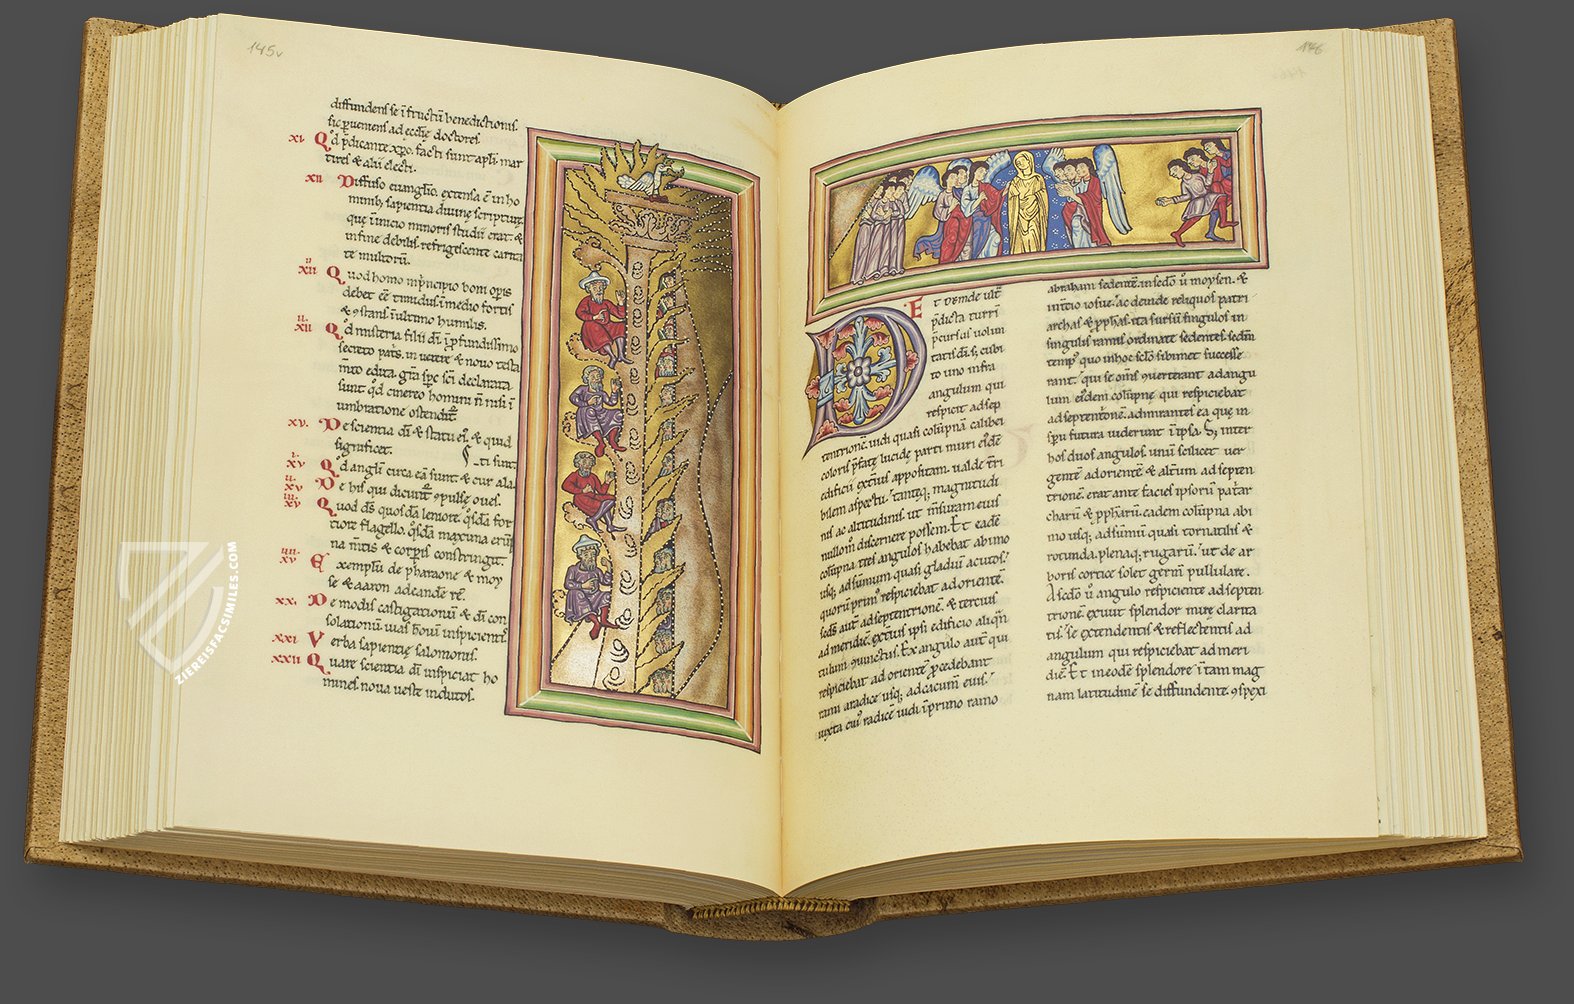 145v
diffundens se ī fructū benedictionis.
sic p̱veniens ad eccl̄ię doctores
xi. Qd p̄dicante xp̄o. facti sunt apl̄i. mar
tires & alii electi.
xii Diffuso euangl̄io. extensa ē in ho
minib; sapientia divinę scripturę.
que ī inicio minoris studii erat. &
in fine debilis. refrigescente carita
te multorū.
xii Quod homo in principio boni op̱is
debet eē timidus. in medio fortis
& ꝯstans. ī ultimo humilis.
xii Qd misteria filii dī. ī p̱fundissimo
secreto patˢ. in uetere & novo testa
m̄to edita. grā sp̄c sc̄i declarata
sunt. qd cinereo homini n̄ nisi ī
umbratione ostendit̄
xv. De scientia dī & statu ei⁹. & quid
significet. ti sunt
xv Qd angl̄i circa eā sunt. & cur ala
xv De his qui dicunt̄ ꝯpulsę oves.
xv Quod dˢ quosdā leniore. q̊sdā for
tiore flagello. q̊sdā maxima erūp
na m̄tis & corp̱is constringit.
xv Exemplū de pharaone & moy
se & aaron ad eandē rē.
xx. De modis castigationū & dī con
solationū
xxi Verba sapientię salomonis.
xxii Quare scientia dī inspiciat ho
mines nova ueste indutos.
146
Et deinde ult̄
p̄dicta turrī
p̄cursus volun
tatis dī. s; cubi
to uno infra
angulum qui
respicit ad sep
tentrionē. uidi quasi colūpnā calibei
coloris p̄fatę lucidę parti muri ei⁹dē
edificii ext̄ius appositam. ualde t̄ri
bilem aspectu. tanteq; magnitudi
nis ac altitudinis. ut m̄suram eius
nullom̊ discernere possem. Et eadē
colūpna tres angulos habebat ab imo
usq; ad summum quasi gladiū acutos.
quorū prim⁹ respiciebat ad orientē.
scdˢ aut̄ ad septentrionē. & tercius
ad meridiē. ext̄ius ipsi edificio aliq̄n
tulum ꝯiunctus. Ex angulo aut̄ qui
respiciebat ad orientē p̱cedebant
rami a radice usq; ad cacumē eius.
iuxta cui⁹ radicē uidi ī primo ramo
abraham sedentē. in scd̄o ū moysen. &
in t̄cio iosue. ac deinde reliquos patri
archas & p̱phas. ita sursū singulos in
singulis ramis ordinate sedentes. scdm̄
temp⁹ quo in hoc sclō sibimet successe
rant. qui se om̄s ꝯverterant ad angu
lum ei⁹dem colūpnę qui respiciebat
ad septentrionē. admirantes ea que in
spū futura uiderunt ī ipsa. S; inter
hos duos angulos. unū scilicet ver
gentē ad orientē & alt̄um ad septen
trionē. erat ante facies ipsorū pat̄ar
charū & p̱pharū. eadem colūpna ab i
mo usq; ad summū quasi tornatilis &
rotunda. plenaq; rugarū. ut de ar
boris cortice solet germ̄ pullulare.
A scdo ū angulo respiciente ad septen
trionē. exiuit splendor mirę clarita
tis. se extendentis & reflectentis ad
angulum qui respiciebat ad meri
diē. Et in eodē splendore ī tam mag
nam latitudinē se diffundente. ꝯspexi
ZIEREISFACSIMILES.COM